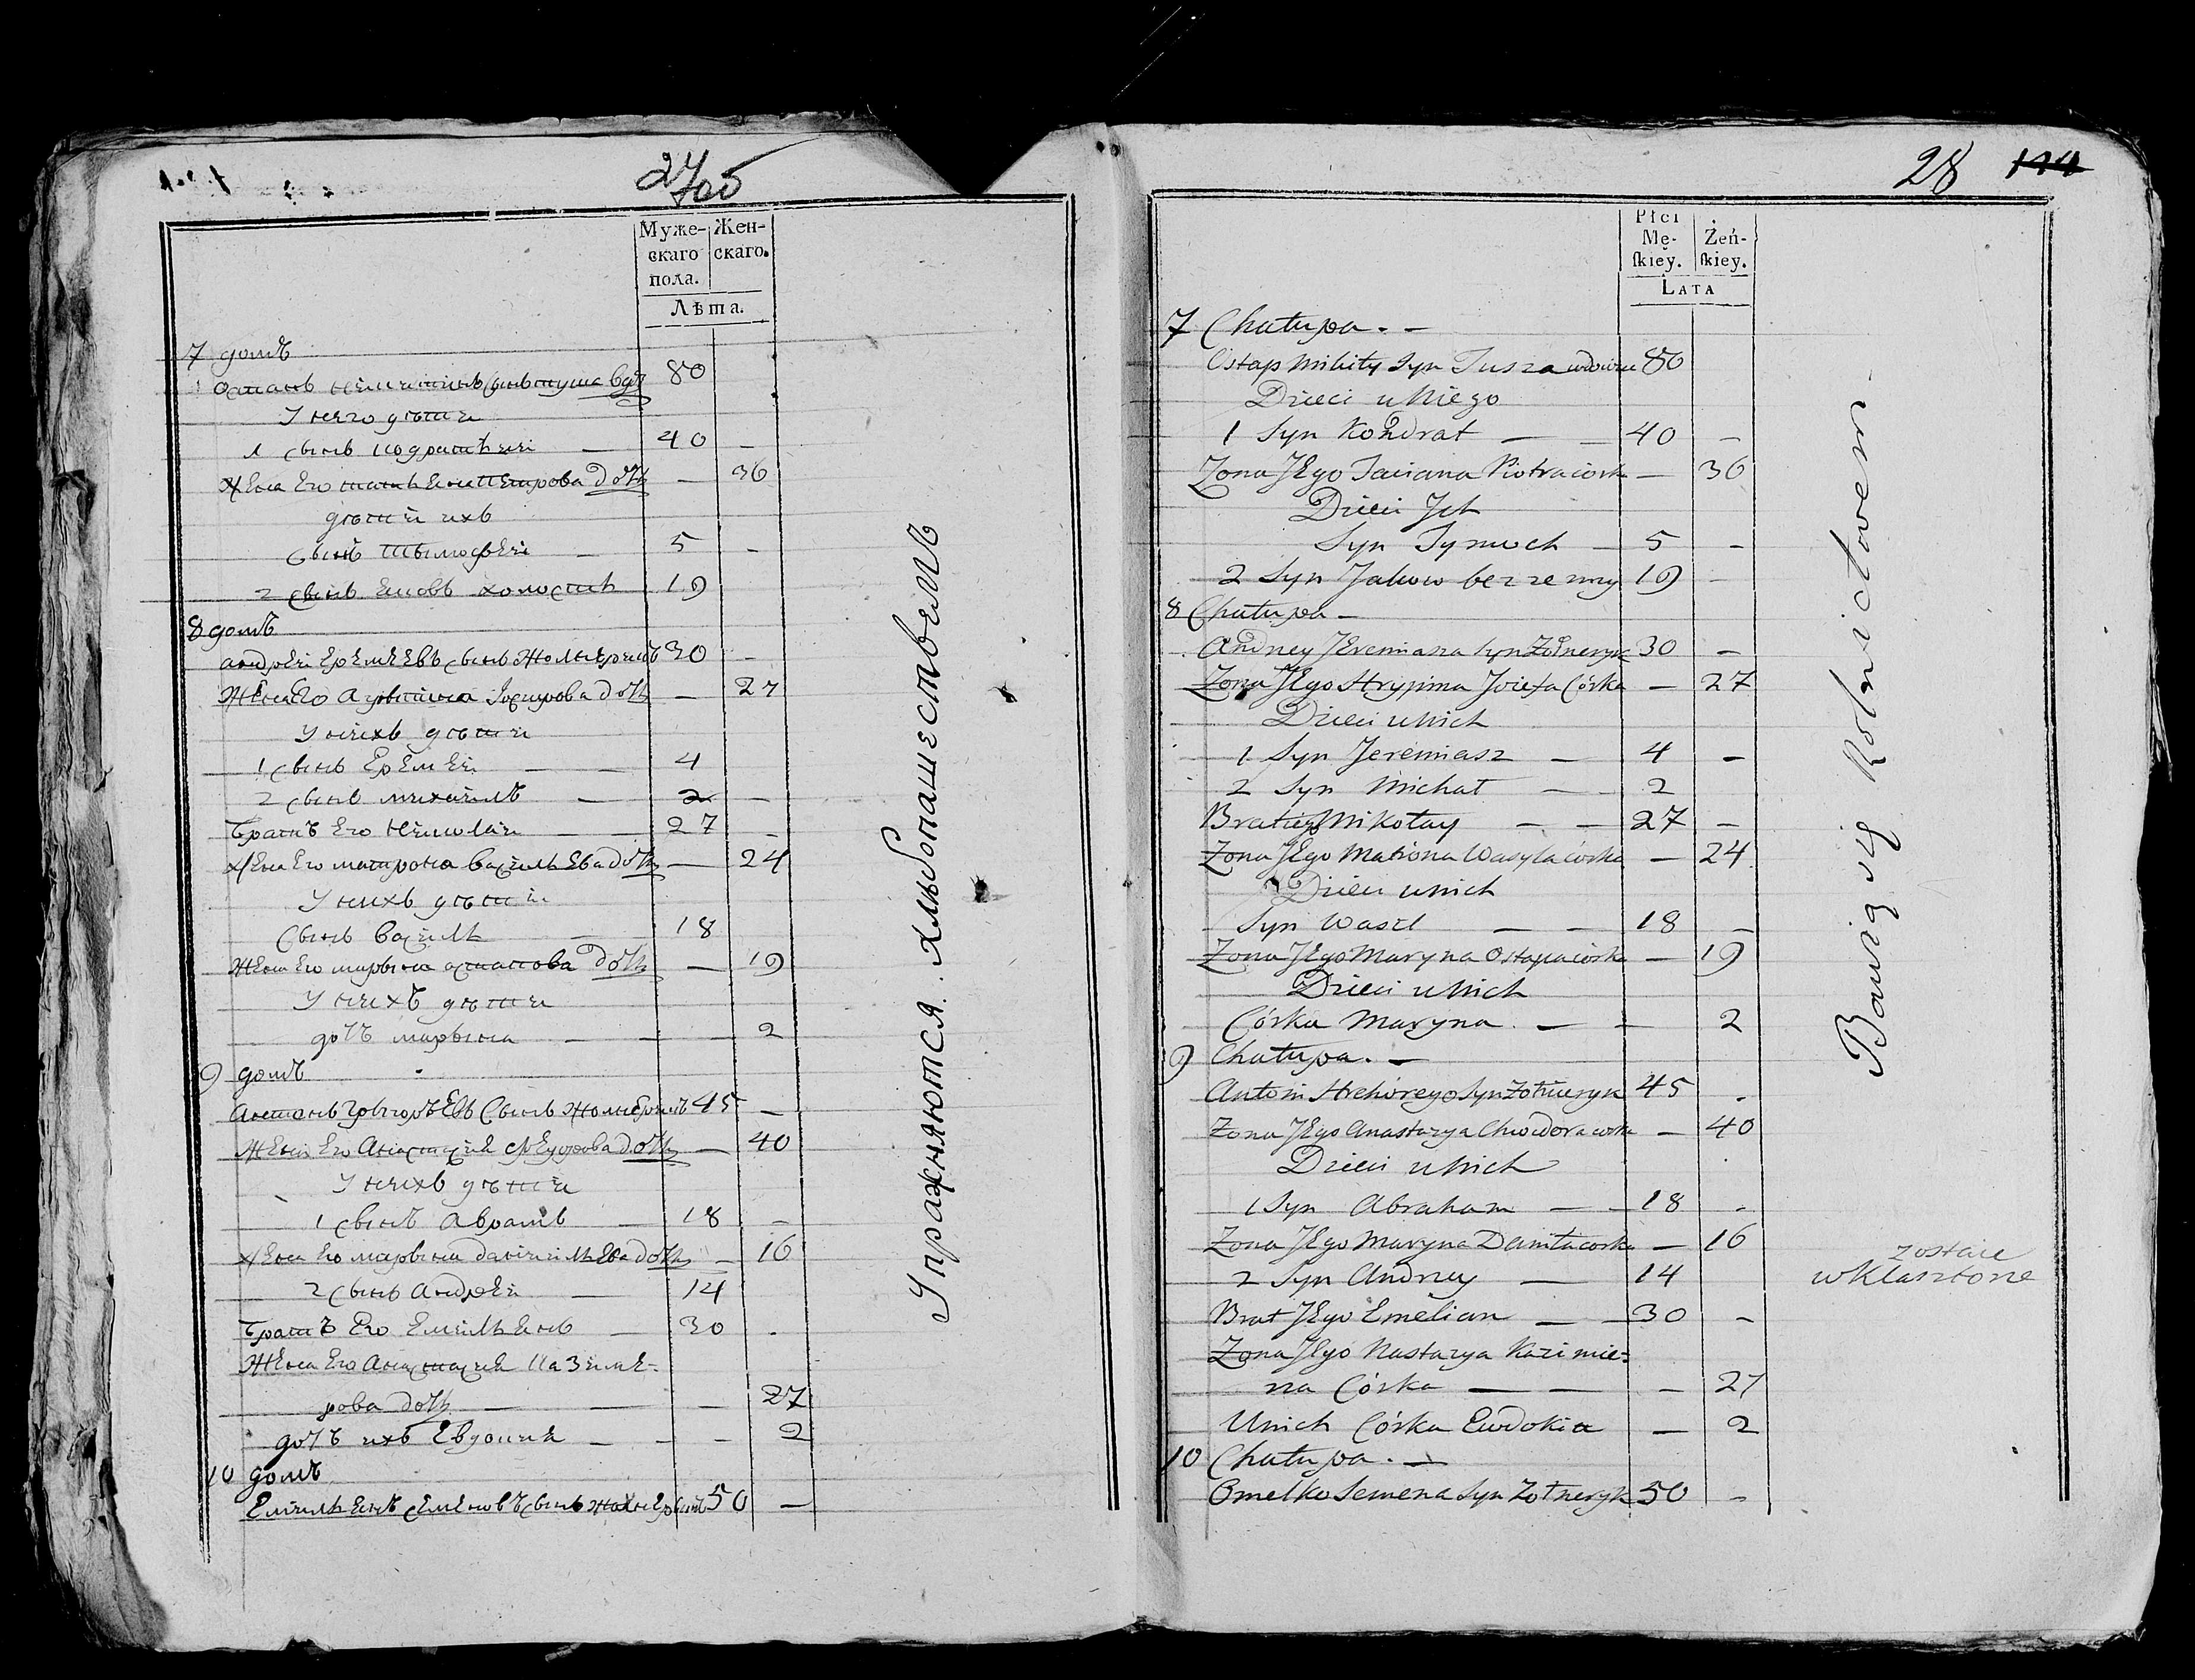 27об
Муже- Жен-
скаго скаго.
пола.
Лѣта.
7 домъ
1 Остапъ Никитинъ сынъ туша вдъ 80
У него дѣти
1 сынъ кодратѣй — 40 —
жена Его татьЕна пЕтрова дочь — 36
дѣти ихъ
сынъ тымофЕй — 5 —
2 сынъ яковъ холостъ 19
8 домъ
андрЕй ЕрЕмЕЕвъ сынъ жолнЕрикъ 30 —
ЖЕна Его Агрыпина Іосипова дочь — 27
У нихъ дѣти
1 сынъ ЕрЕмЕй — — 4
2 сынъ михаилъ — 2 —
братъ Его Николай — — 27 —
жЕна Его матрона василЬЕва дочь — 24
У нихъ дѣти
сынъ василь — 18
жЕна Его марына астапова дочь — 19
У нихъ дѣти
дочь марына — — — 2
9 домъ
Антонъ ГрыгорЪЕвъ сынъ жолнЕрикъ 45 —
ЖЕна Его Анастасия ѲЕдорова дочь — 40
У нихъ дѣти
1 сынъ Аврамъ — 18 —
жЕна Его марына данилЬЕва дочь — 16
2 сынъ АндрЕй — 14
братъ Его ЕмилЬЕнъ — 30 .
ЖЕна Его Анастасия Казимѣ-
рова дочь — — — 27
дочь ихъ Евдокия — — — 2
10 домъ
ЕмилЬЕнъ сЕмЕновъ сынъ жолнЕрыкъ 50 —
Упражняются хлѣбопашествемъ
28 114
Płci
Mę- Żeń-
ſkiey. ſkiey.
LATA
7 Chałupa. —
Ostap Mikity Syn Tusza wdowiec 80
Dzieci u Niego
1 Syn Kondrat — — 40 —
Zona JEgo Taciana Piotra córka — 36
Dzieci Jch
Syn Tymoch — 5 —
2 Syn Jakow bez zenny 19 —
8 Chałupa —
Andrzey JEremiasza Syn Zołneryk 30 —
Zona JEgo Hrypina Jozefa Córka — 27
Dzieci u Nich
1 Syn Jeremiasz — 4 —
2 Syn Michał — — 2
Brat iego Mikołay — — 27 —
Zona JEgo Matrona Wasyla córka — 24
Dzieci u Nich
Syn Wasil — — 18 —
Zona JEgo Maryna Ostapa córka — 19
Dzieci u Nich
Córka Maryna. — — 2
9 Chałupa. —
Antoni Hrehorego Syn Zołneryk 45 .
Zona JEgo Anastazya Chwedora corka — 40
Dzieci u Nich
1 Syn Abraham — — 18 .
Zona JEgo Maryna Daniła corka — 16
2 Syn Andrzey — 14
zostaie
w Klasztorze
Brat JEgo Emelian — — 30 —
Zona JEgo Nastazya Kazimie=
rza Córka — — — 27
U nich Córka Ewdokia — 2
10 Chałupa. —
Omelko Semena Syn Zołneryk 50 —
Bawią się Rolnictwem